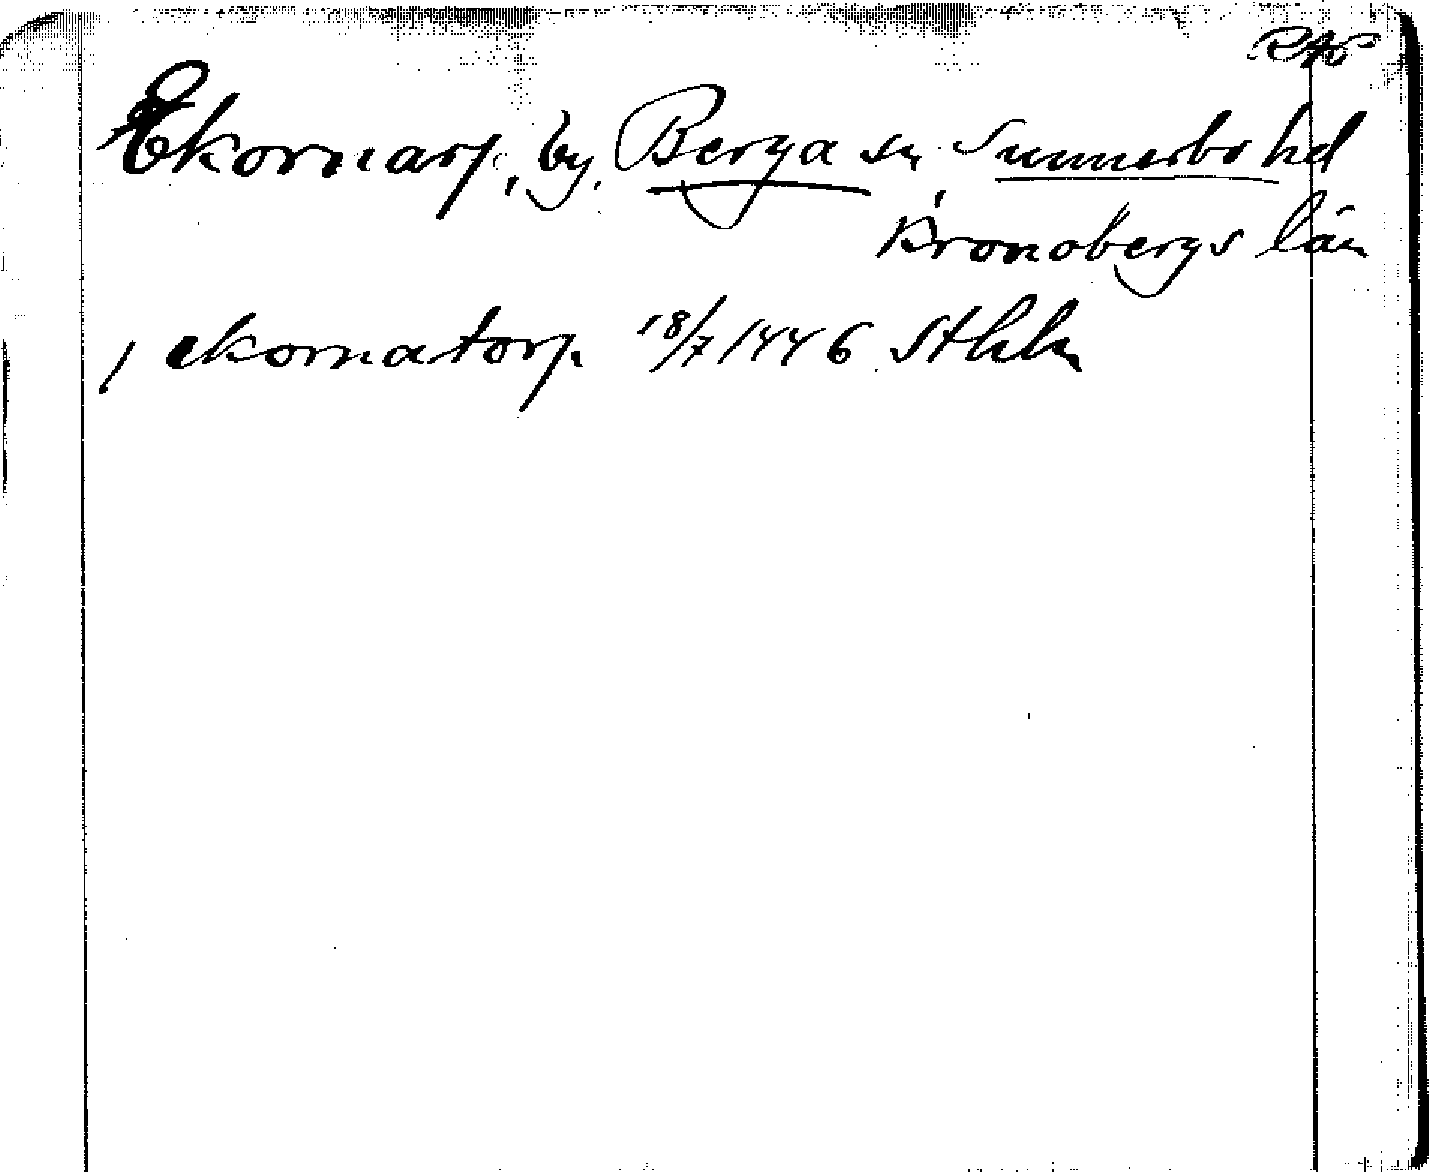 RAp
Ekornarp, by, Berga sn Sunnerbo hd
Kronobergs län
/ ekornatorp 18/7 1446 Sthlm